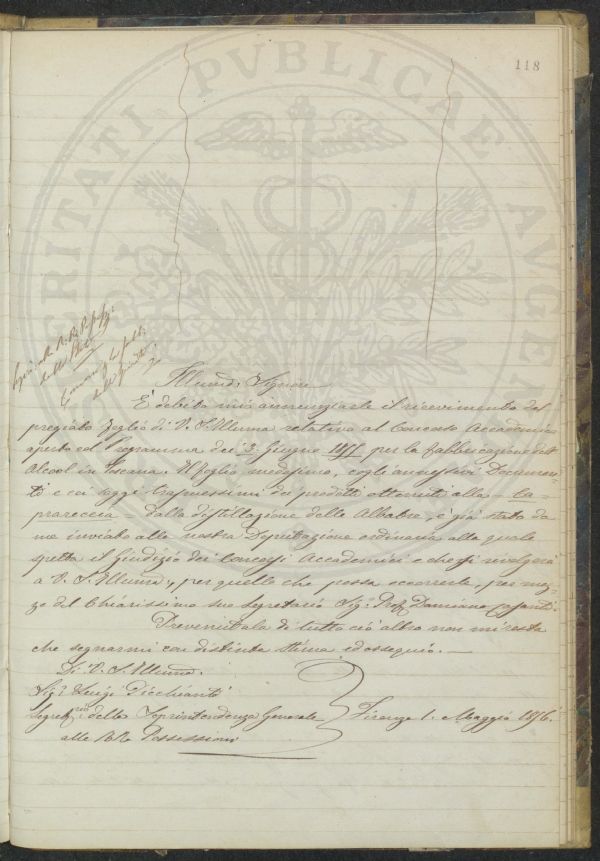 118
PROSPERITATI PVBLICAE AVGENDAE
Illmo Signore
È debito mio annunziarle il ricevimento del
pregiato Foglio di V. S. Illuma relativo al Concorso Accademico
aperto col Programma dei 3. Giugno 1855 per la fabbricazione dell'
Alcool in Toscana. Il foglio medesimo, cogli annessivi Documen-
ti e coi saggi trasmessimi dei prodotti ottenuti alla Ca-
prareccia dalla distillazione delle Albatre, è già stato da
me inviato alla nostra Deputazione ordinaria alla quale
spetta il Giudizio dei Concorsi Accademici e che si rivolgerà
a V. S. Illuma, per quello che possa occorrere, per mez-
zo del Chiarissimo suo Segretario Sig. Prof. Damiano Casanti.
Prevenutala di tutto ciò altro non mi resta
che segnarmi con distinta stima ed ossequio. —
Di V. S. Illuma.
Sigr Luigi Diechianti
Segretrio della Soprintendenza Generale
alle RR. Possessioni
Firenze 1. Maggio 1856.